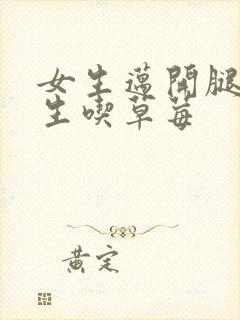 女生邁開腿
生喫草莓
黃定